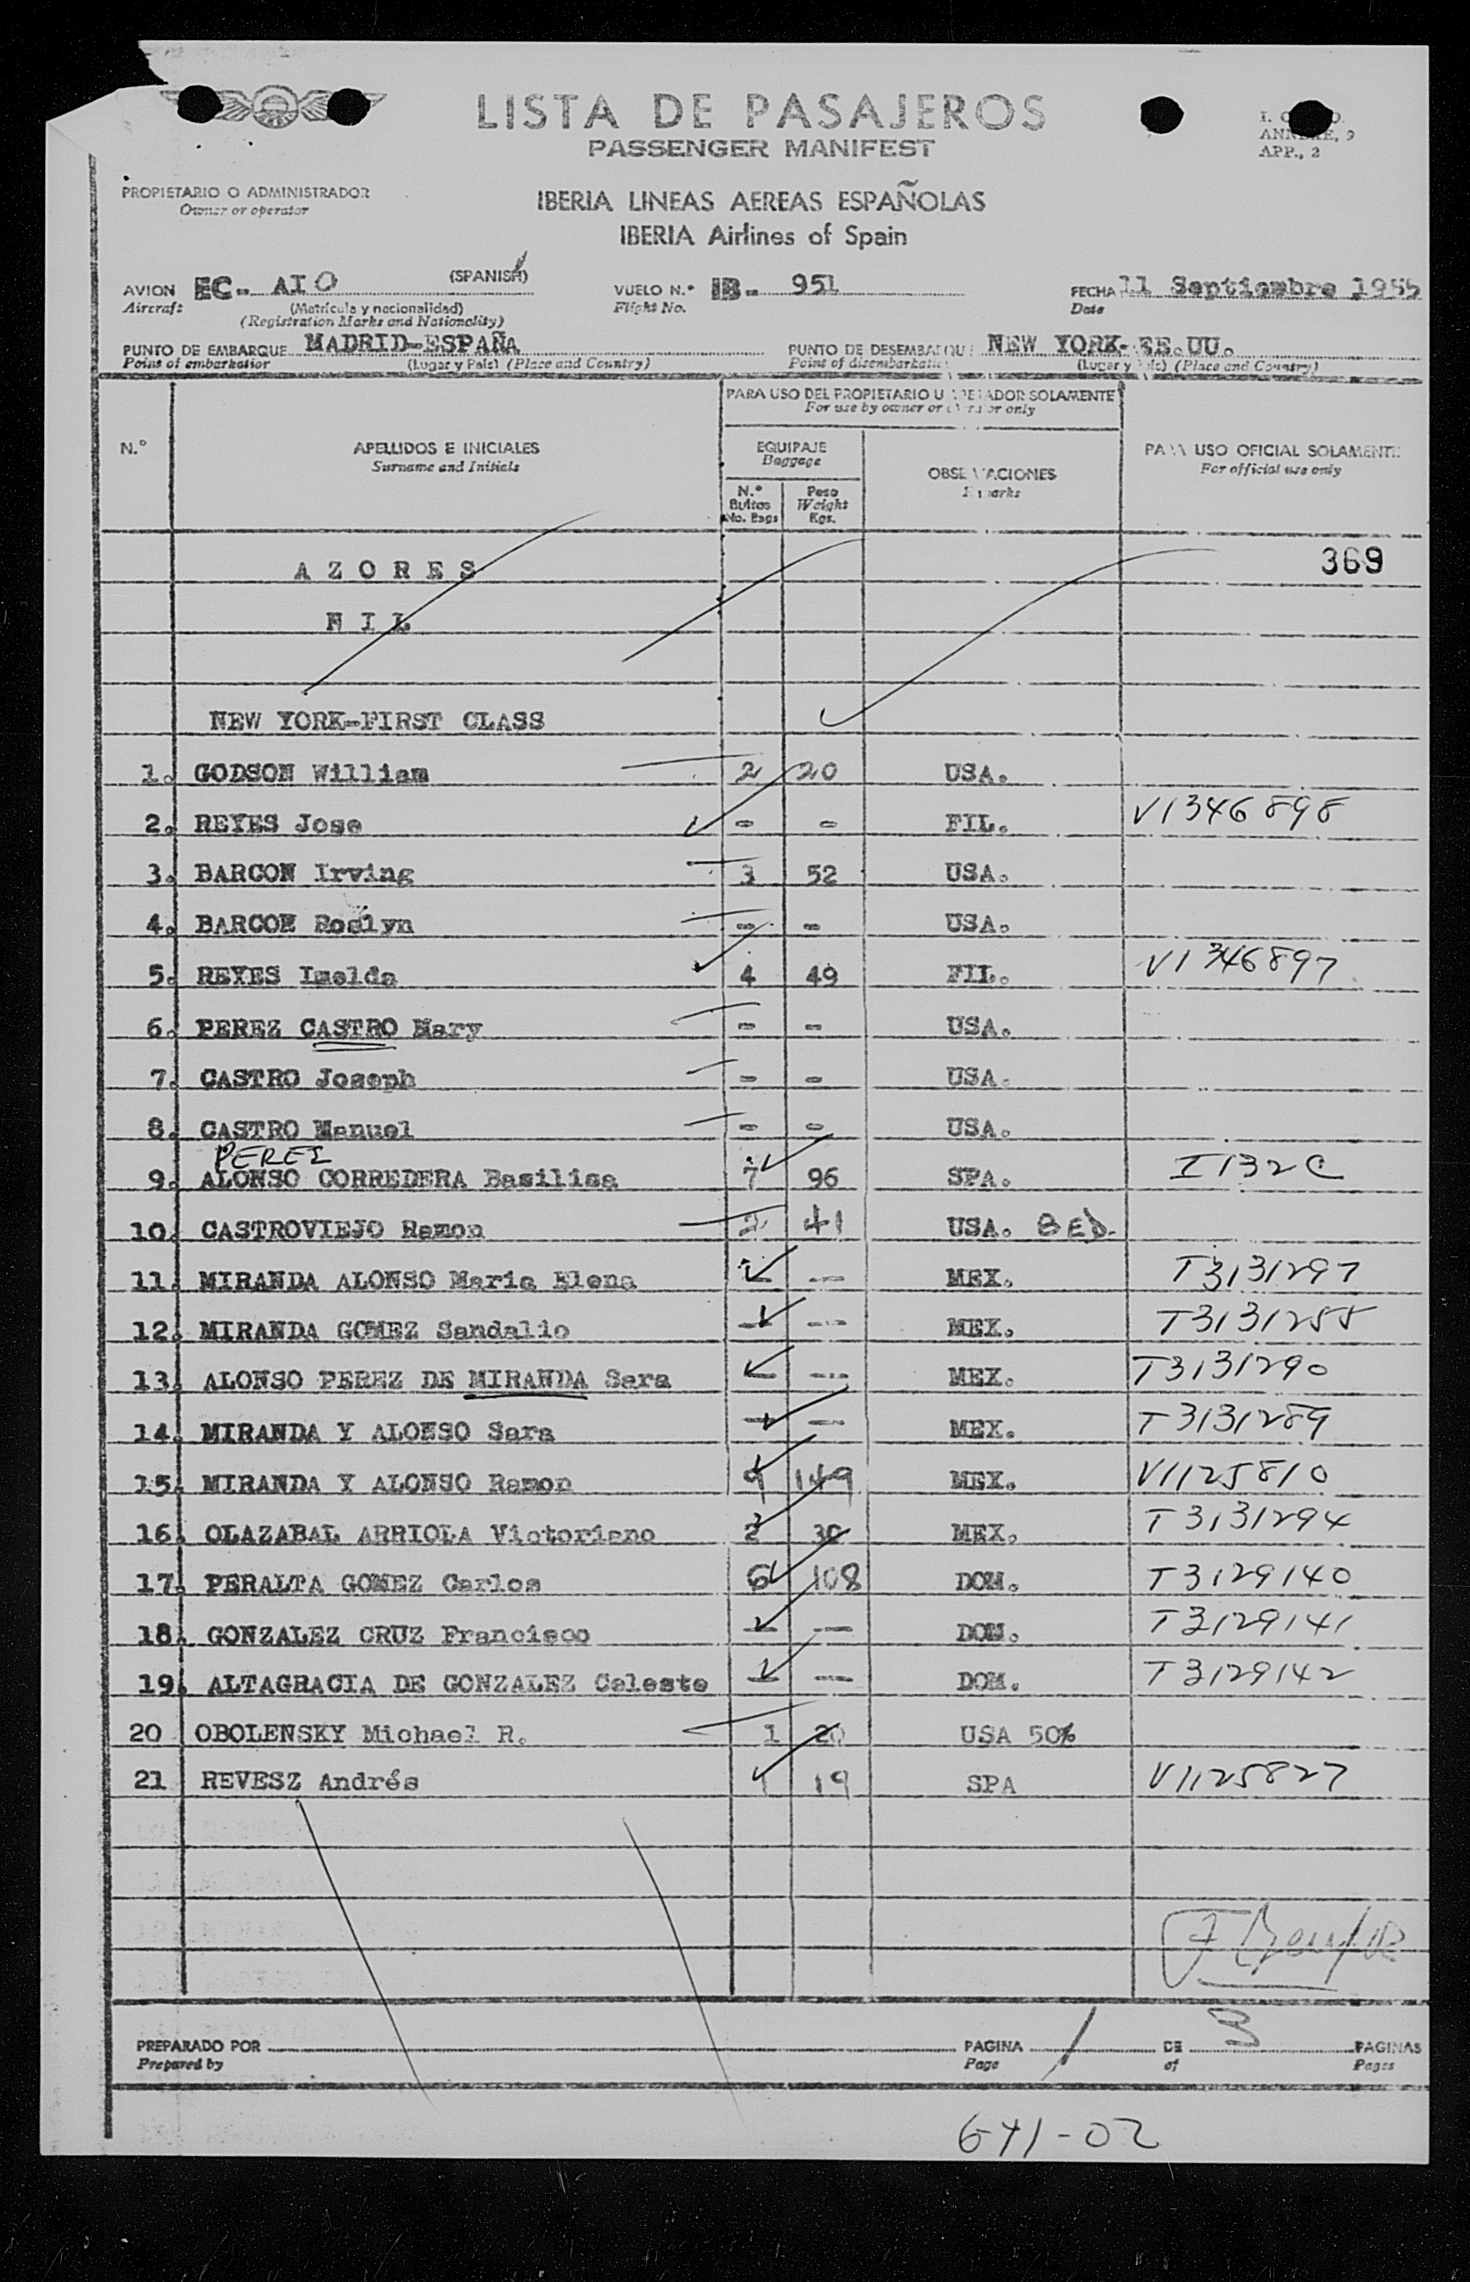 LISTA DE PASAJEROS
PASSENGER MANIFEST
APP., 2
PROPIETARIO O ADMINISTRADOR
Owner or operator
IBERIA LINEAS AEREAS ESPAÑOLAS
IBERIA Airlines of Spain
AVION EC- AIO (SPANISH) VUELO N.º IB- 951 FECHA 11 Septiembre 1955
Aircraft (Matrícula y nacionalidad) Flight No. Date
(Registration Marks and Nationality)
PUNTO DE EMBARQUE MADRID-ESPAÑA PUNTO DE DESEMBARQUE NEW YORK- EE.UU.
Point of embarkation (Lugar y País) (Place and Country) Point of disembarkation (Lugar y País) (Place and Country)
PARA USO DEL PROPIETARIO U OPERADOR SOLAMENTE
For use by owner or operator only
N.º APELLIDOS E INICIALES EQUIPAJE OBSERVACIONES PARA USO OFICIAL SOLAMENTE
Surname and Initials Baggage Remarks For official use only
N.º Bultos Peso
No. Bags Weight Kgs.
AZORES 369
NIL
NEW YORK-FIRST CLASS
1. GODSON William 2 20 USA.
2. REYES Jose - - FIL. V1346898
3. BARCON Irving 3 52 USA.
4. BARCON Roslyn - - USA.
5. REYES Imelda 4 49 FIL. V1346897
6. PEREZ CASTRO Mary - - USA.
7. CASTRO Joseph - - USA.
8. CASTRO Manuel - - USA.
PEREZ
9. ALONSO CORREDERA Basilisa 7 96 SPA. I132C
10. CASTROVIEJO Ramon 2 41 USA. BED.
11. MIRANDA ALONSO Maria Elena - - MEX. T3131297
12. MIRANDA GOMEZ Sandalio - - MEX. T3131288
13. ALONSO PEREZ DE MIRANDA Sara - - MEX. T3131290
14. MIRANDA Y ALONSO Sara - - MEX. T3131289
15. MIRANDA Y ALONSO Ramon 9 149 MEX. V1125810
16. OLAZABAL ARRIOLA Victoriano 2 30 MEX. T3131294
17. PERALTA GOMEZ Carlos 6 108 DOM. T3129140
18. GONZALEZ CRUZ Francisco - - DOM. T3129141
19. ALTAGRACIA DE GONZALEZ Celeste - - DOM. T3129142
20 OBOLENSKY Michael R. 1 20 USA 50%
21 REVESZ Andrés 1 19 SPA V1125827
PREPARADO POR PAGINA 1 DE 3 PAGINAS
Prepared by Page of Pages
641-02